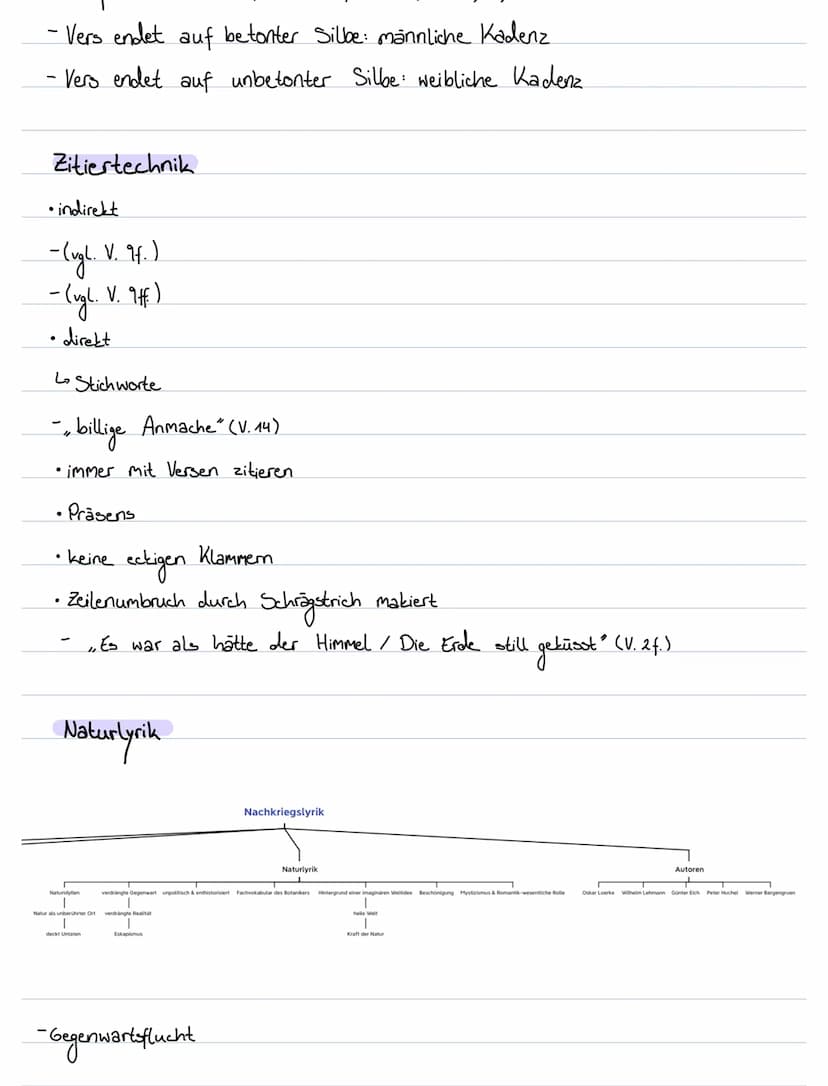 - Vers endet auf betonter Silbe: männliche Kadenz
- Vers endet auf unbetonter Silbe: weibliche Kadenz
Zitiertechnik
• indirekt
- (vgl. V. 9f.)
- (vgl. V. 9ff.)
• direkt
↳ Stichworte
- „billige Anmache" (V. 14)
• immer mit Versen zitieren
• Präsens
• keine eckigen Klammern
• Zeilenumbruch durch Schrägstrich makiert
- „Es war als hätte der Himmel / Die Erde still geküsst" (V. 2f.)
Naturlyrik
Nachkriegslyrik
Naturlyrik Autoren
Naturidyllen verdrängte Gegenwart unpolitisch & enthistorisiert Fachvokabular des Botanikers Hintergrund einer imaginären Weltidee Beschönigung Mystizismus & Romantik-wesentliche Rolle Oskar Loerke Wilhelm Lehmann Günter Eich Peter Huchel Werner Bergengruen
Natur als unberührter Ort verdrängte Realität heile Welt
deckt Untaten Eskapismus Kraft der Natur
- Gegenwartsflucht